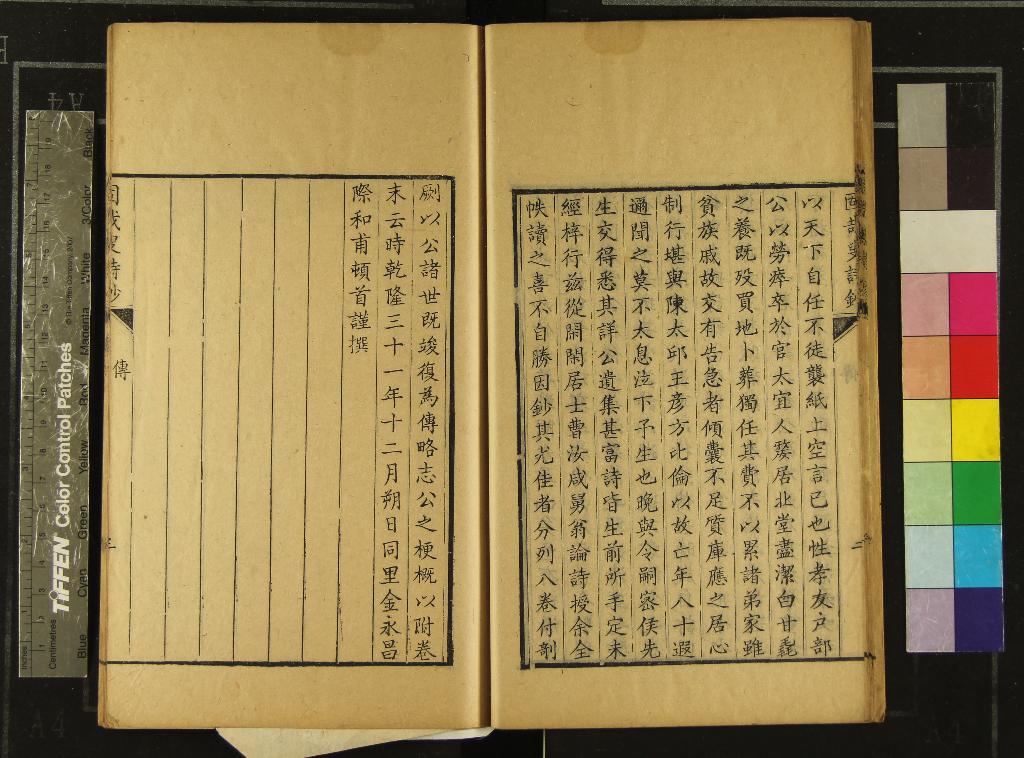 以天下自任不徒襲紙上空言已也性孝友戶部
公以勞瘁卒於官太宜人嫠居北堂盡潔白甘毳
之養既歿買地卜葬獨任其費不以累諸弟家雖
貧族戚故交有告急者傾囊不足質庫應之居心
制行堪與陳太邱王彥方比倫以故亡年八十遐
邇聞之莫不太息泣下予生也晚與令嗣密侯先
生交得悉其詳公遺集甚富詩皆生前所手定未
經梓行茲從閒閑居士曹汝咸舅翁論詩授余全
帙讀之喜不自勝因鈔其尤佳者分列八卷付剞
劂以公諸世既竣復為傳略志公之梗概以附卷
末云時乾隆三十一年十二月朔日同里金永昌
際和甫頓首謹撰
傳
TIFFEN Color Control Patches
Blue Cyan Green Yellow Red Magenta White 3/Color Black
Centimetres
Inches